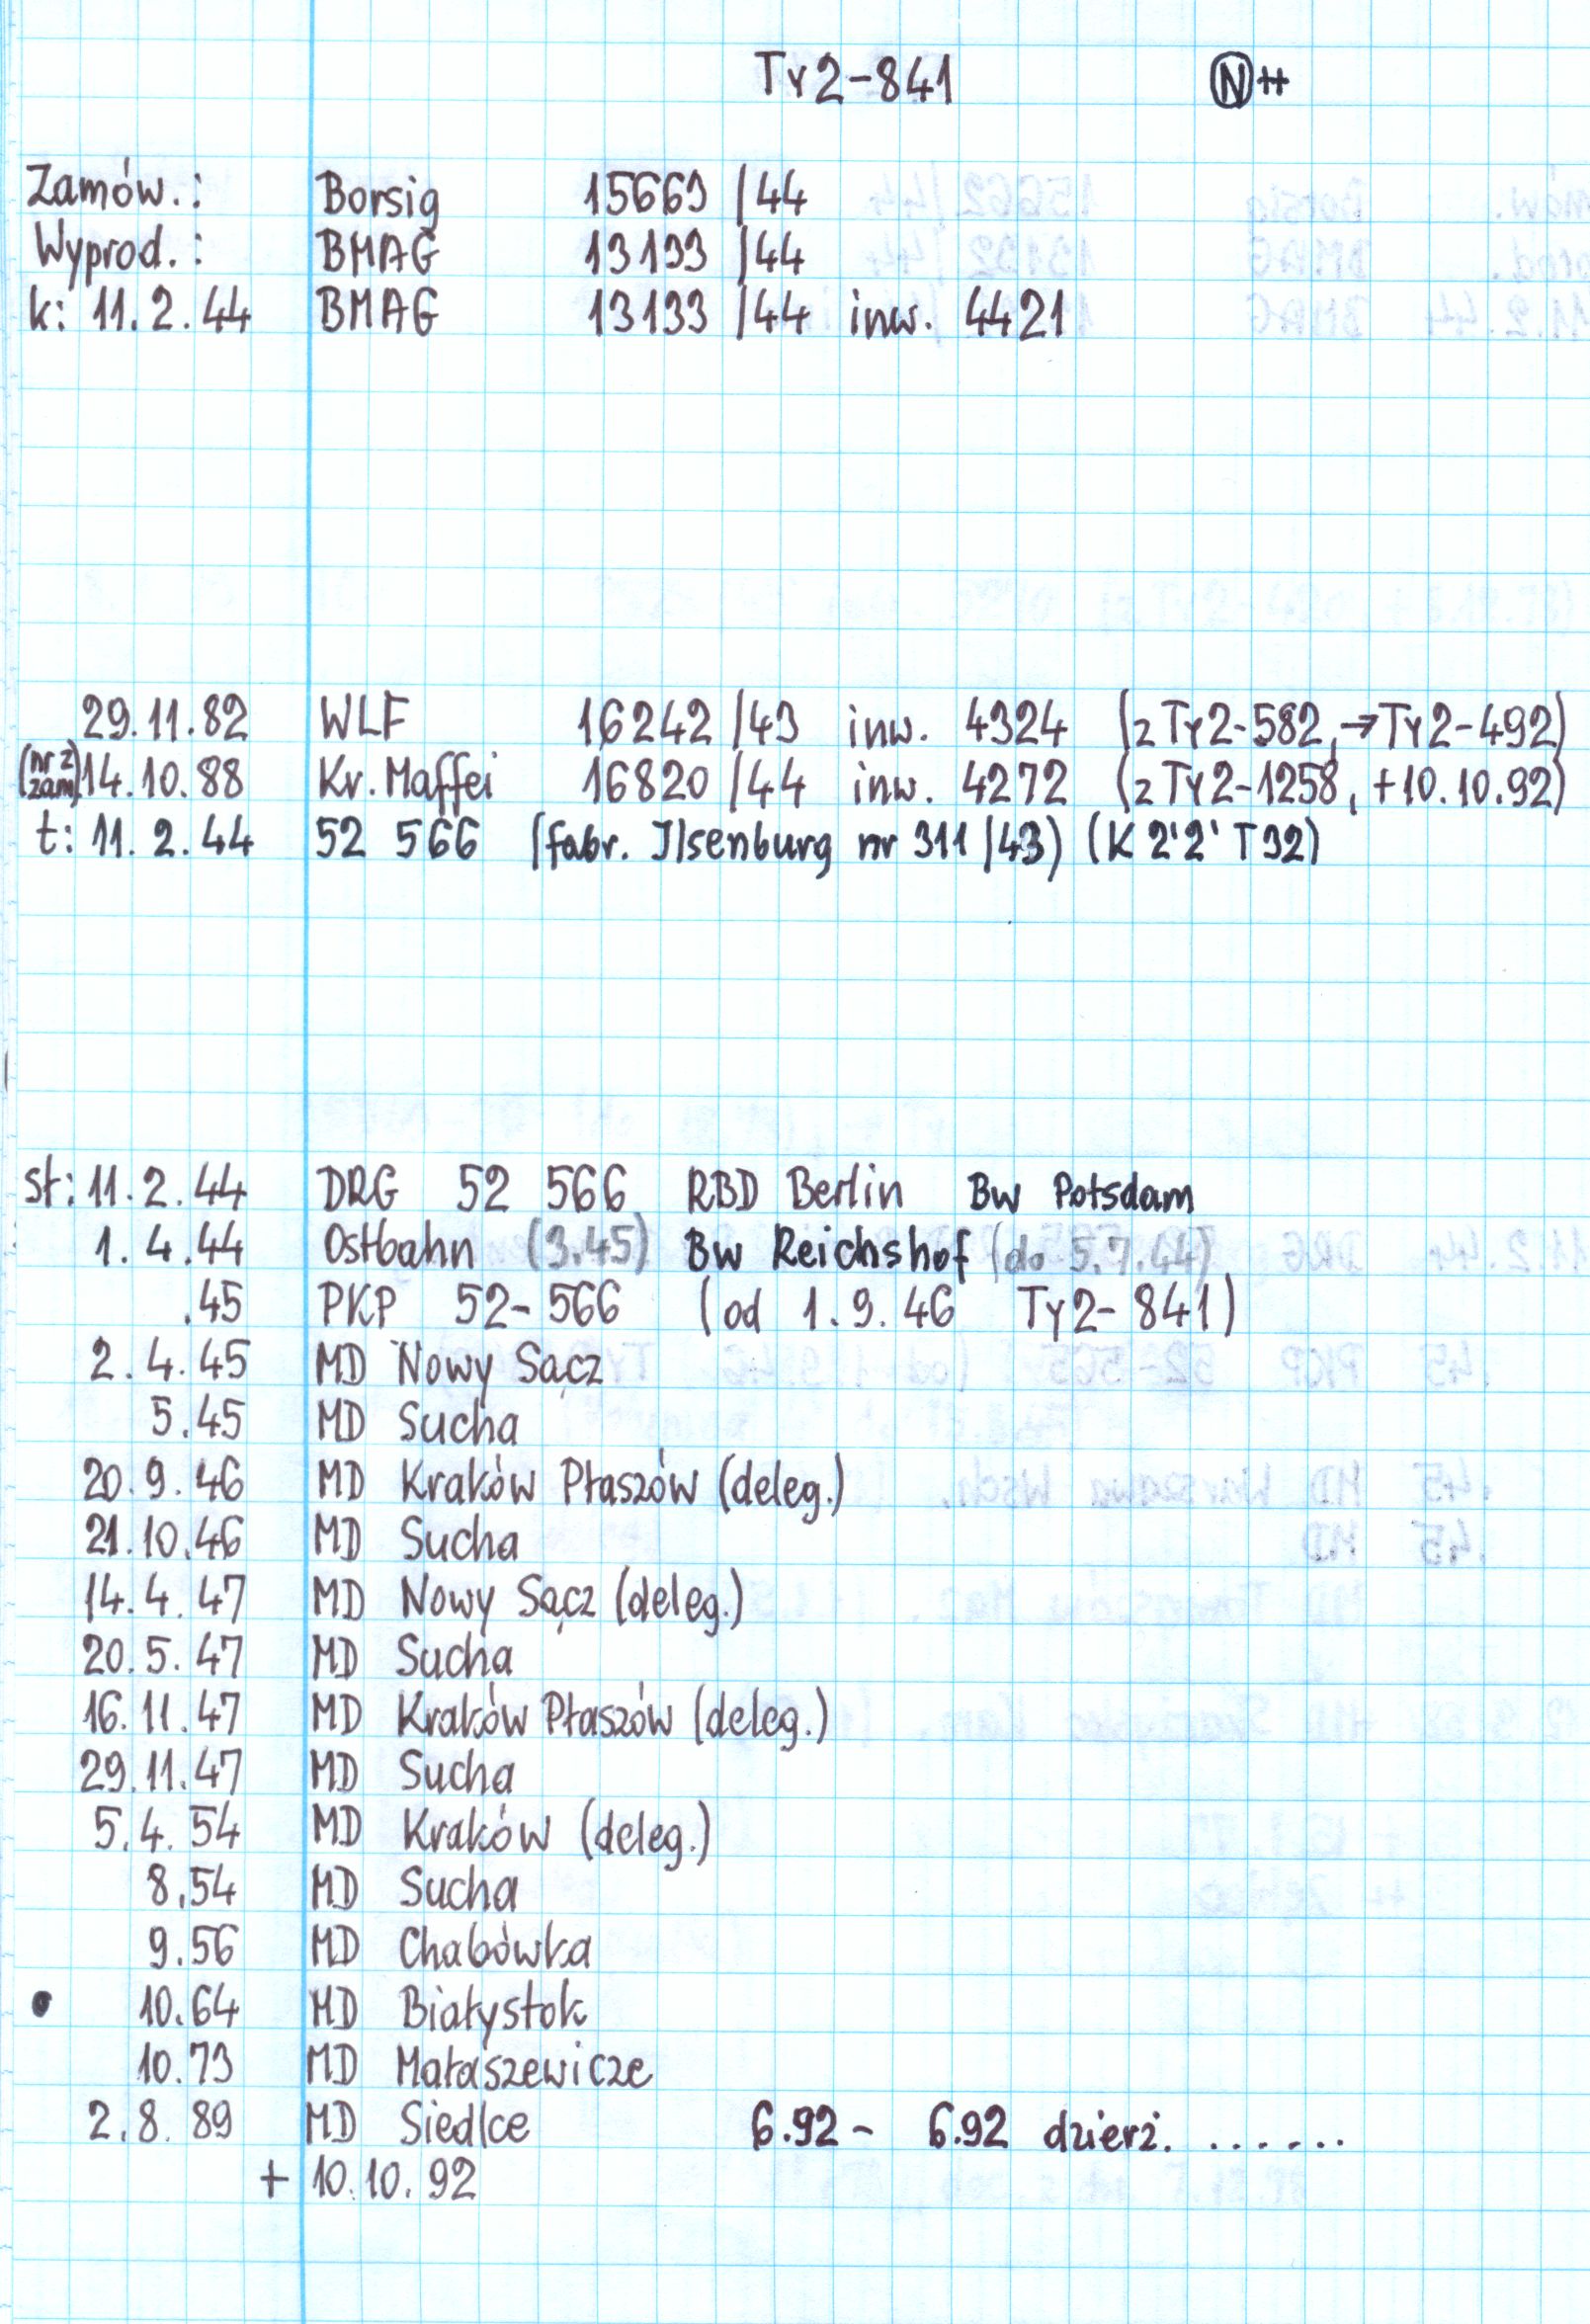 Ty2-841 Ⓝ++
Zamów.: Borsig 15669 /44
Wyprod.: BMAG 13133 /44
k: 11.2.44 BMAG 13133 /44 inw. 4421
29.11.82 WLF 16242 /43 inw. 4324 (z Ty2-582, →Ty2-492)
(nr z zam) 14.10.88 Kr. Maffei 16820 /44 inw. 4272 (z Ty2-1258, +10.10.92)
t: 11.2.44 52 566 (fabr. Ilsenburg nr 311 /43) (K 2'2' T32)
st: 11.2.44 DRG 52 566 RBD Berlin Bw Potsdam
1.4.44 Ostbahn (3.45) Bw Reichshof (do 5.7.44)
.45 PKP 52-566 (od 1.9.46 Ty2-841)
2.4.45 MD Nowy Sącz
5.45 MD Sucha
20.9.46 MD Kraków Płaszów (deleg.)
21.10.46 MD Sucha
14.4.47 MD Nowy Sącz (deleg.)
20.5.47 MD Sucha
16.11.47 MD Kraków Płaszów (deleg.)
29.11.47 MD Sucha
5.4.54 MD Kraków (deleg.)
8.54 MD Sucha
9.56 MD Chabówka
• 10.64 MD Białystok
10.73 MD Małaszewicze
2.8.89 MD Siedlce 6.92 - 6.92 dzierż. ......
+ 10.10.92